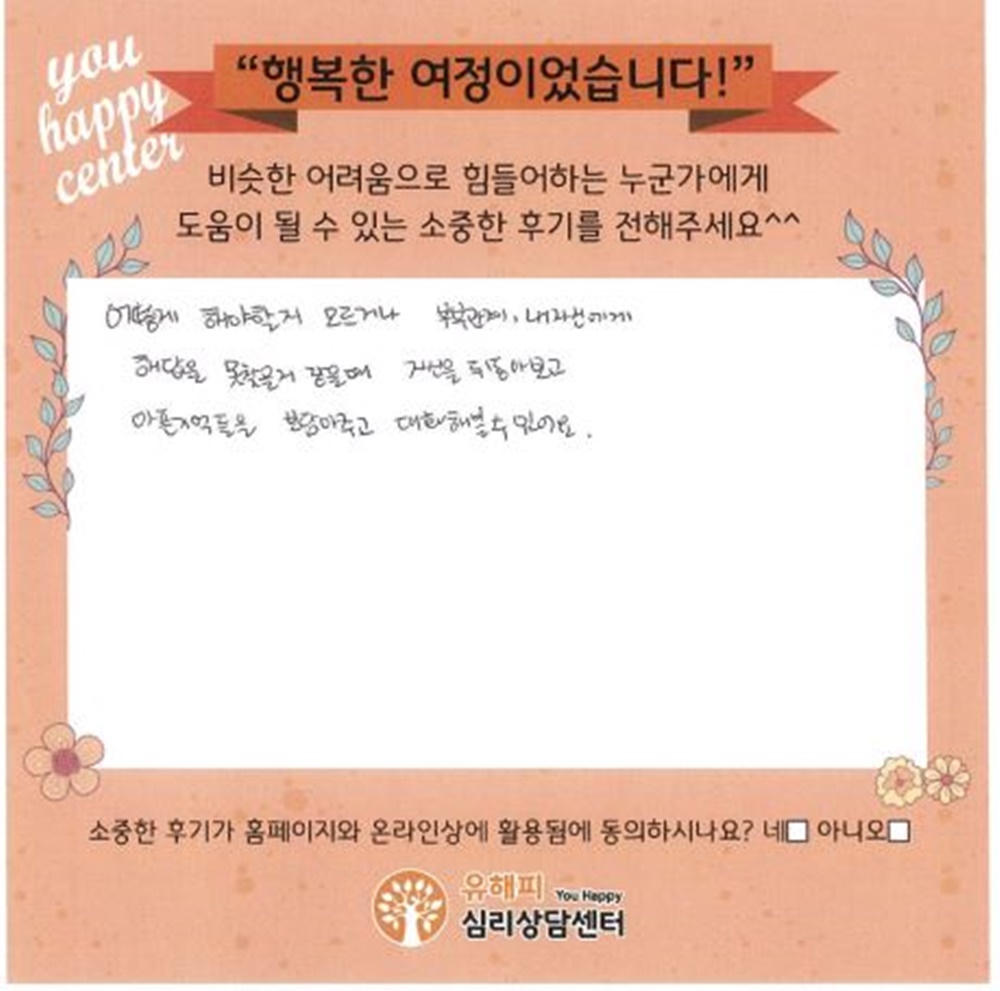 you
happy
center
“행복한 여정이었습니다!”
비슷한 어려움으로 힘들어하는 누군가에게
도움이 될 수 있는 소중한 후기를 전해주세요^^
어떻게 해야할지 모르거나 부부관계, 내자신에게
해답을 못찾을거 같을때 자신을 뒤돌아보고
아픈기억들을 보담아주고 대화해볼수 있어요.
소중한 후기가 홈페이지와 온라인상에 활용됨에 동의하시나요? 네□ 아니오□
유해피 You Happy
심리상담센터